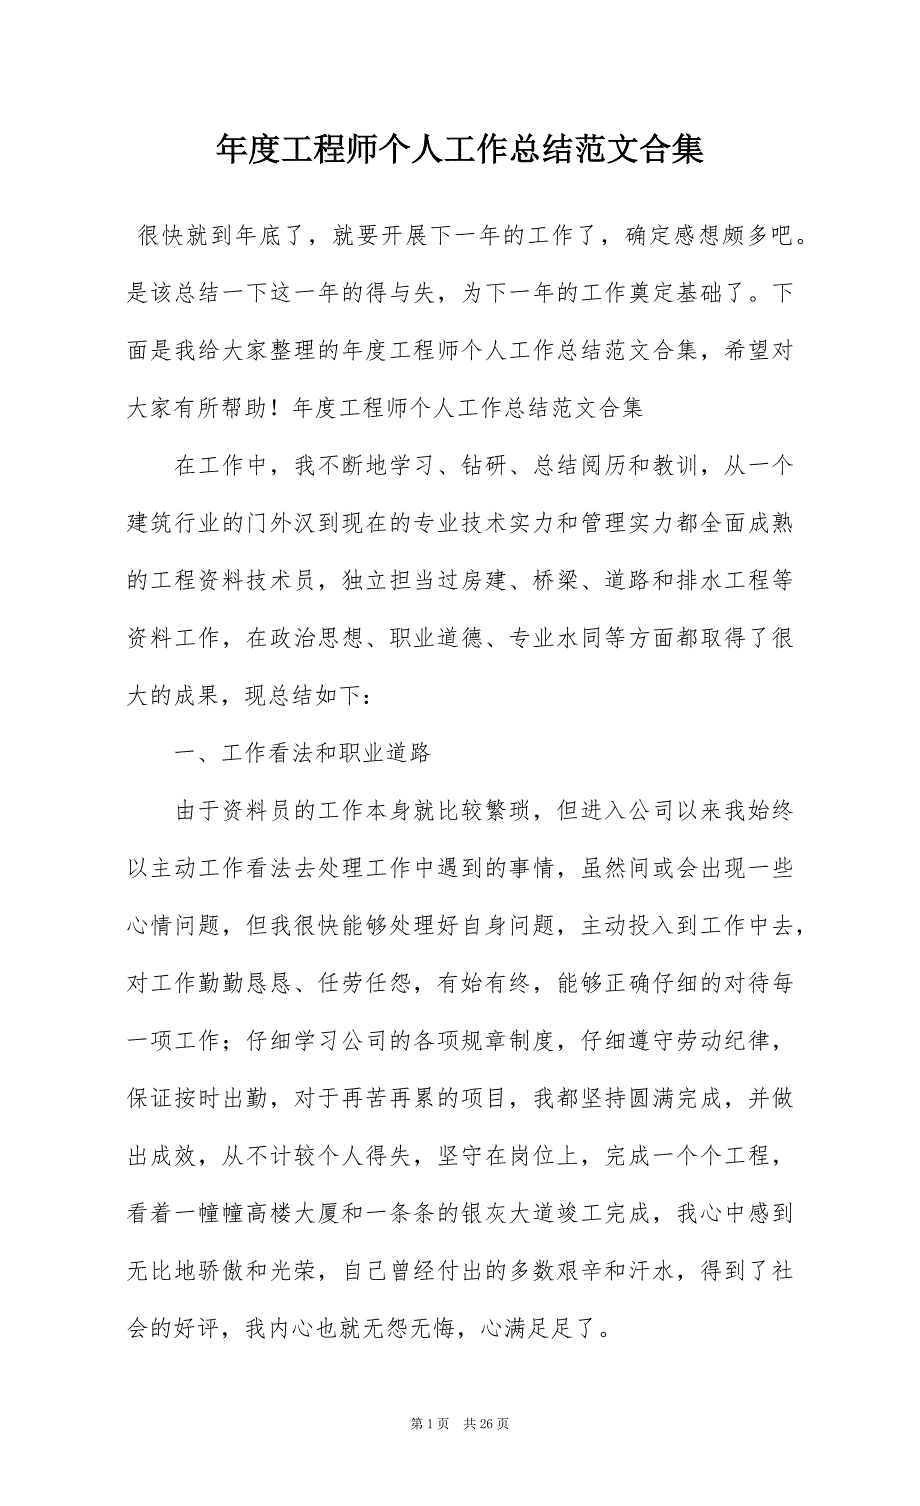 年度工程师个人工作总结范文合集
很快就到年底了，就要开展下一年的工作了，确定感想颇多吧。
是该总结一下这一年的得与失，为下一年的工作奠定基础了。下
面是我给大家整理的年度工程师个人工作总结范文合集，希望对
大家有所帮助！年度工程师个人工作总结范文合集
在工作中，我不断地学习、钻研、总结阅历和教训，从一个
建筑行业的门外汉到现在的专业技术实力和管理实力都全面成熟
的工程资料技术员，独立担当过房建、桥梁、道路和排水工程等
资料工作，在政治思想、职业道德、专业水同等方面都取得了很
大的成果，现总结如下：
一、工作看法和职业道路
由于资料员的工作本身就比较繁琐，但进入公司以来我始终
以主动工作看法去处理工作中遇到的事情，虽然间或会出现一些
心情问题，但我很快能够处理好自身问题，主动投入到工作中去，
对工作勤勤恳恳、任劳任怨，有始有终，能够正确仔细的对待每
一项工作；仔细学习公司的各项规章制度，仔细遵守劳动纪律，
保证按时出勤，对于再苦再累的项目，我都坚持圆满完成，并做
出成效，从不计较个人得失，坚守在岗位上，完成一个个工程，
看着一幢幢高楼大厦和一条条的银灰大道竣工完成，我心中感到
无比地骄傲和光荣，自己曾经付出的多数艰辛和汗水，得到了社
会的好评，我内心也就无怨无悔，心满足足了。
第 1 页 共 26 页